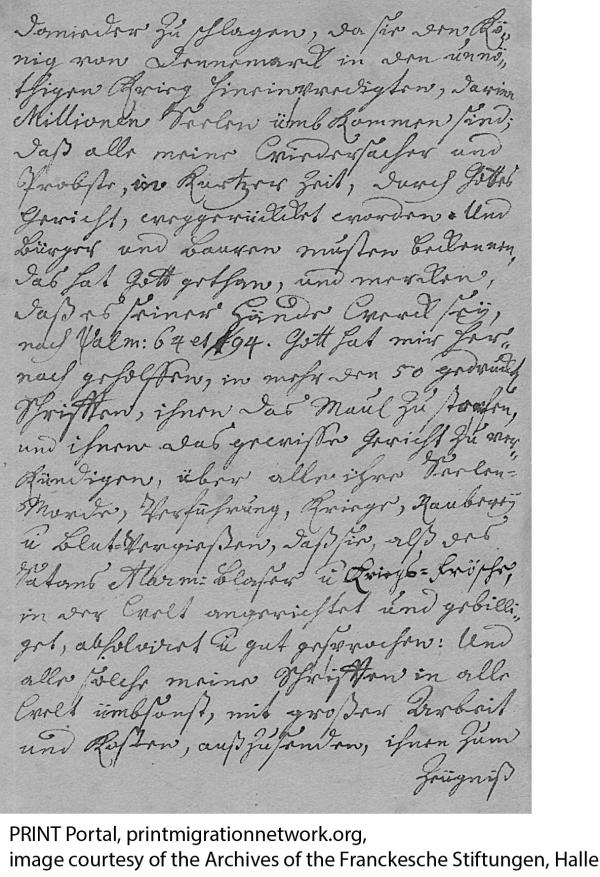 danieder zu schlagen, da sie den Kö„
nig von Dennemarck in den unnö„
thigen Krieg hineinpredigten, darin
Millionen Seelen ümbkommen sind;
daß alle meine Wiedersacher und
Pröbste, in kurtzer Zeit, durch Gottes
Gericht, weggerückket worden. Und
Bürger und Bauren musten bekennen,
das hat Gott gethan, und mercken,
daß es seiner Hände Werck seÿ,
nach Psalm: 64 et 94. Gott hat mir her„
nach geholffen, in mehr den 50 gedruckt
Schrifften, ihnen das Maul zu stopfen,
und ihnen das gewisse Gericht zu ver„
kündigen, über alle ihre Seelen-
Morde, Verführung, Kriege, Raubereÿ
u Blut-Vergießen, daß sie, alß des
Satans Alarm: Blaser u Kriegs-Frösche,
in der Welt angerichtet und gebilli„
get, absolviret u gut gesprochen: Und
alle solche meine Schrifften in alle
Welt ümbsonst, mit großer Arbeit
und Kosten, außzusenden, ihnen zum
Zeügniß
PRINT Portal, printmigrationnetwork.org,
image courtesy of the Archives of the Franckesche Stiftungen, Halle